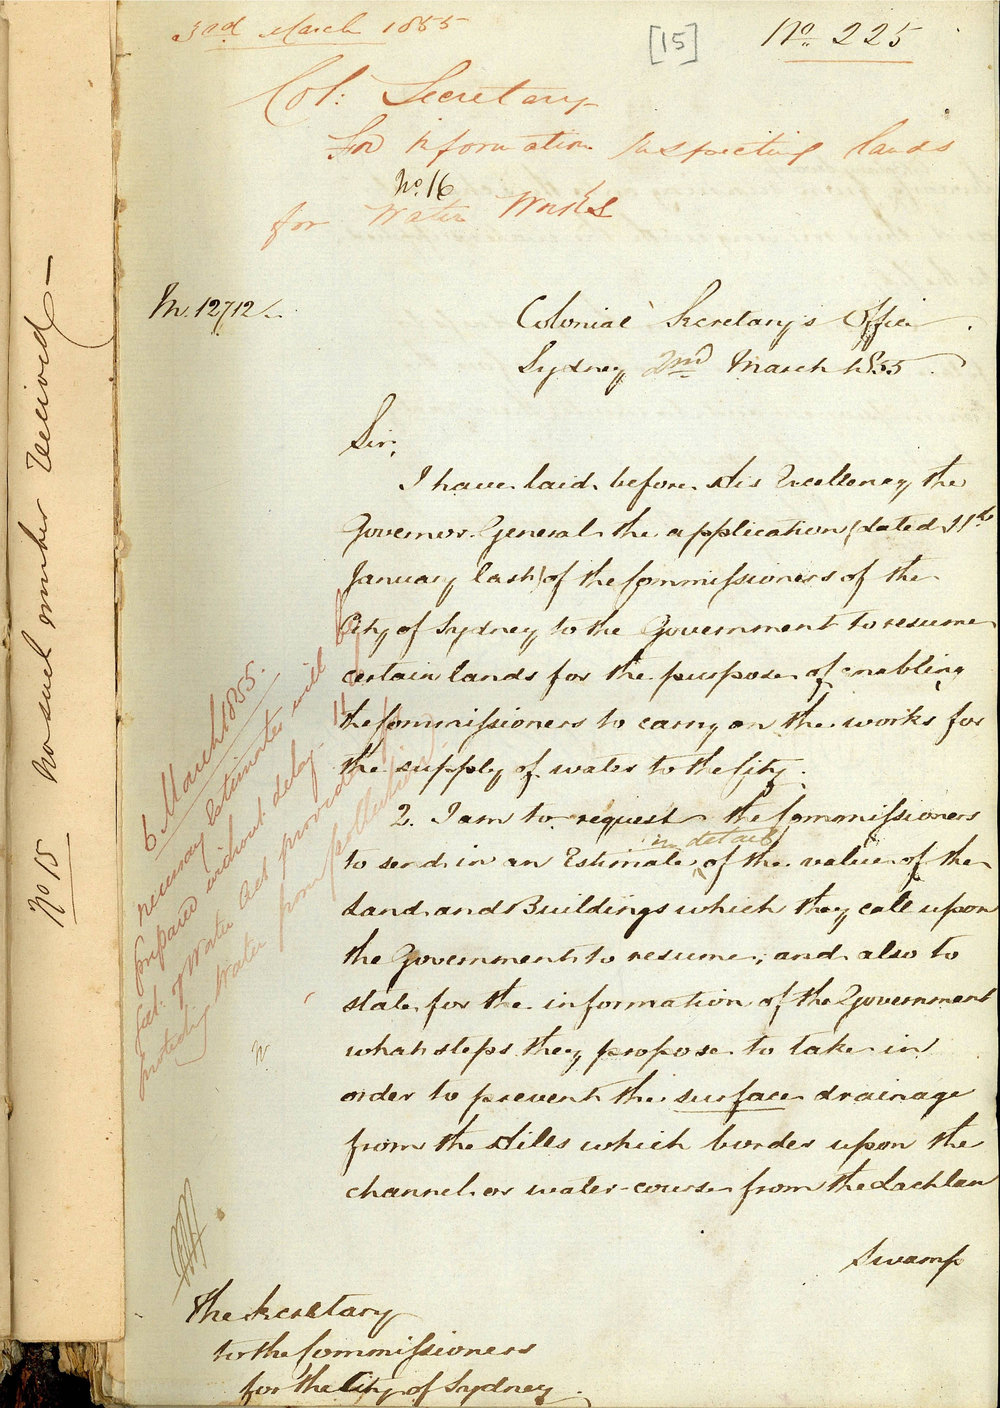 No 15 No such number received —
3rd March 1855
[15]
No. 225
Col: Secretary
For information respecting lands
No. 16
for Water Works
M. 12712
Colonial Secretary's Office
Sydney 2nd March 1855.
Sir,
I have laid before His Excellency the
Governor General the application (dated 31st
January last) of the Commissioners of the
City of Sydney to the Government to resume
certain lands for the purpose of enabling
the Commissioners to carry on the works for
the supply of water to the City.
2. I am to request the Commissioners
in detail
to send in an Estimate of the value of the
Land and Buildings which they call upon
the Government to resume, and also to
state for the information of the Government
what steps they propose to take in
order to prevent the surface drainage
from the Hills which border upon the
channel or water-course from the Lachlan
Swamp
6 March 1855.
necessary Estimates will be
prepared without delay.
of Water Act provides for
protecting Water from pollution
The Secretary
to the Commissioners
for the City of Sydney.